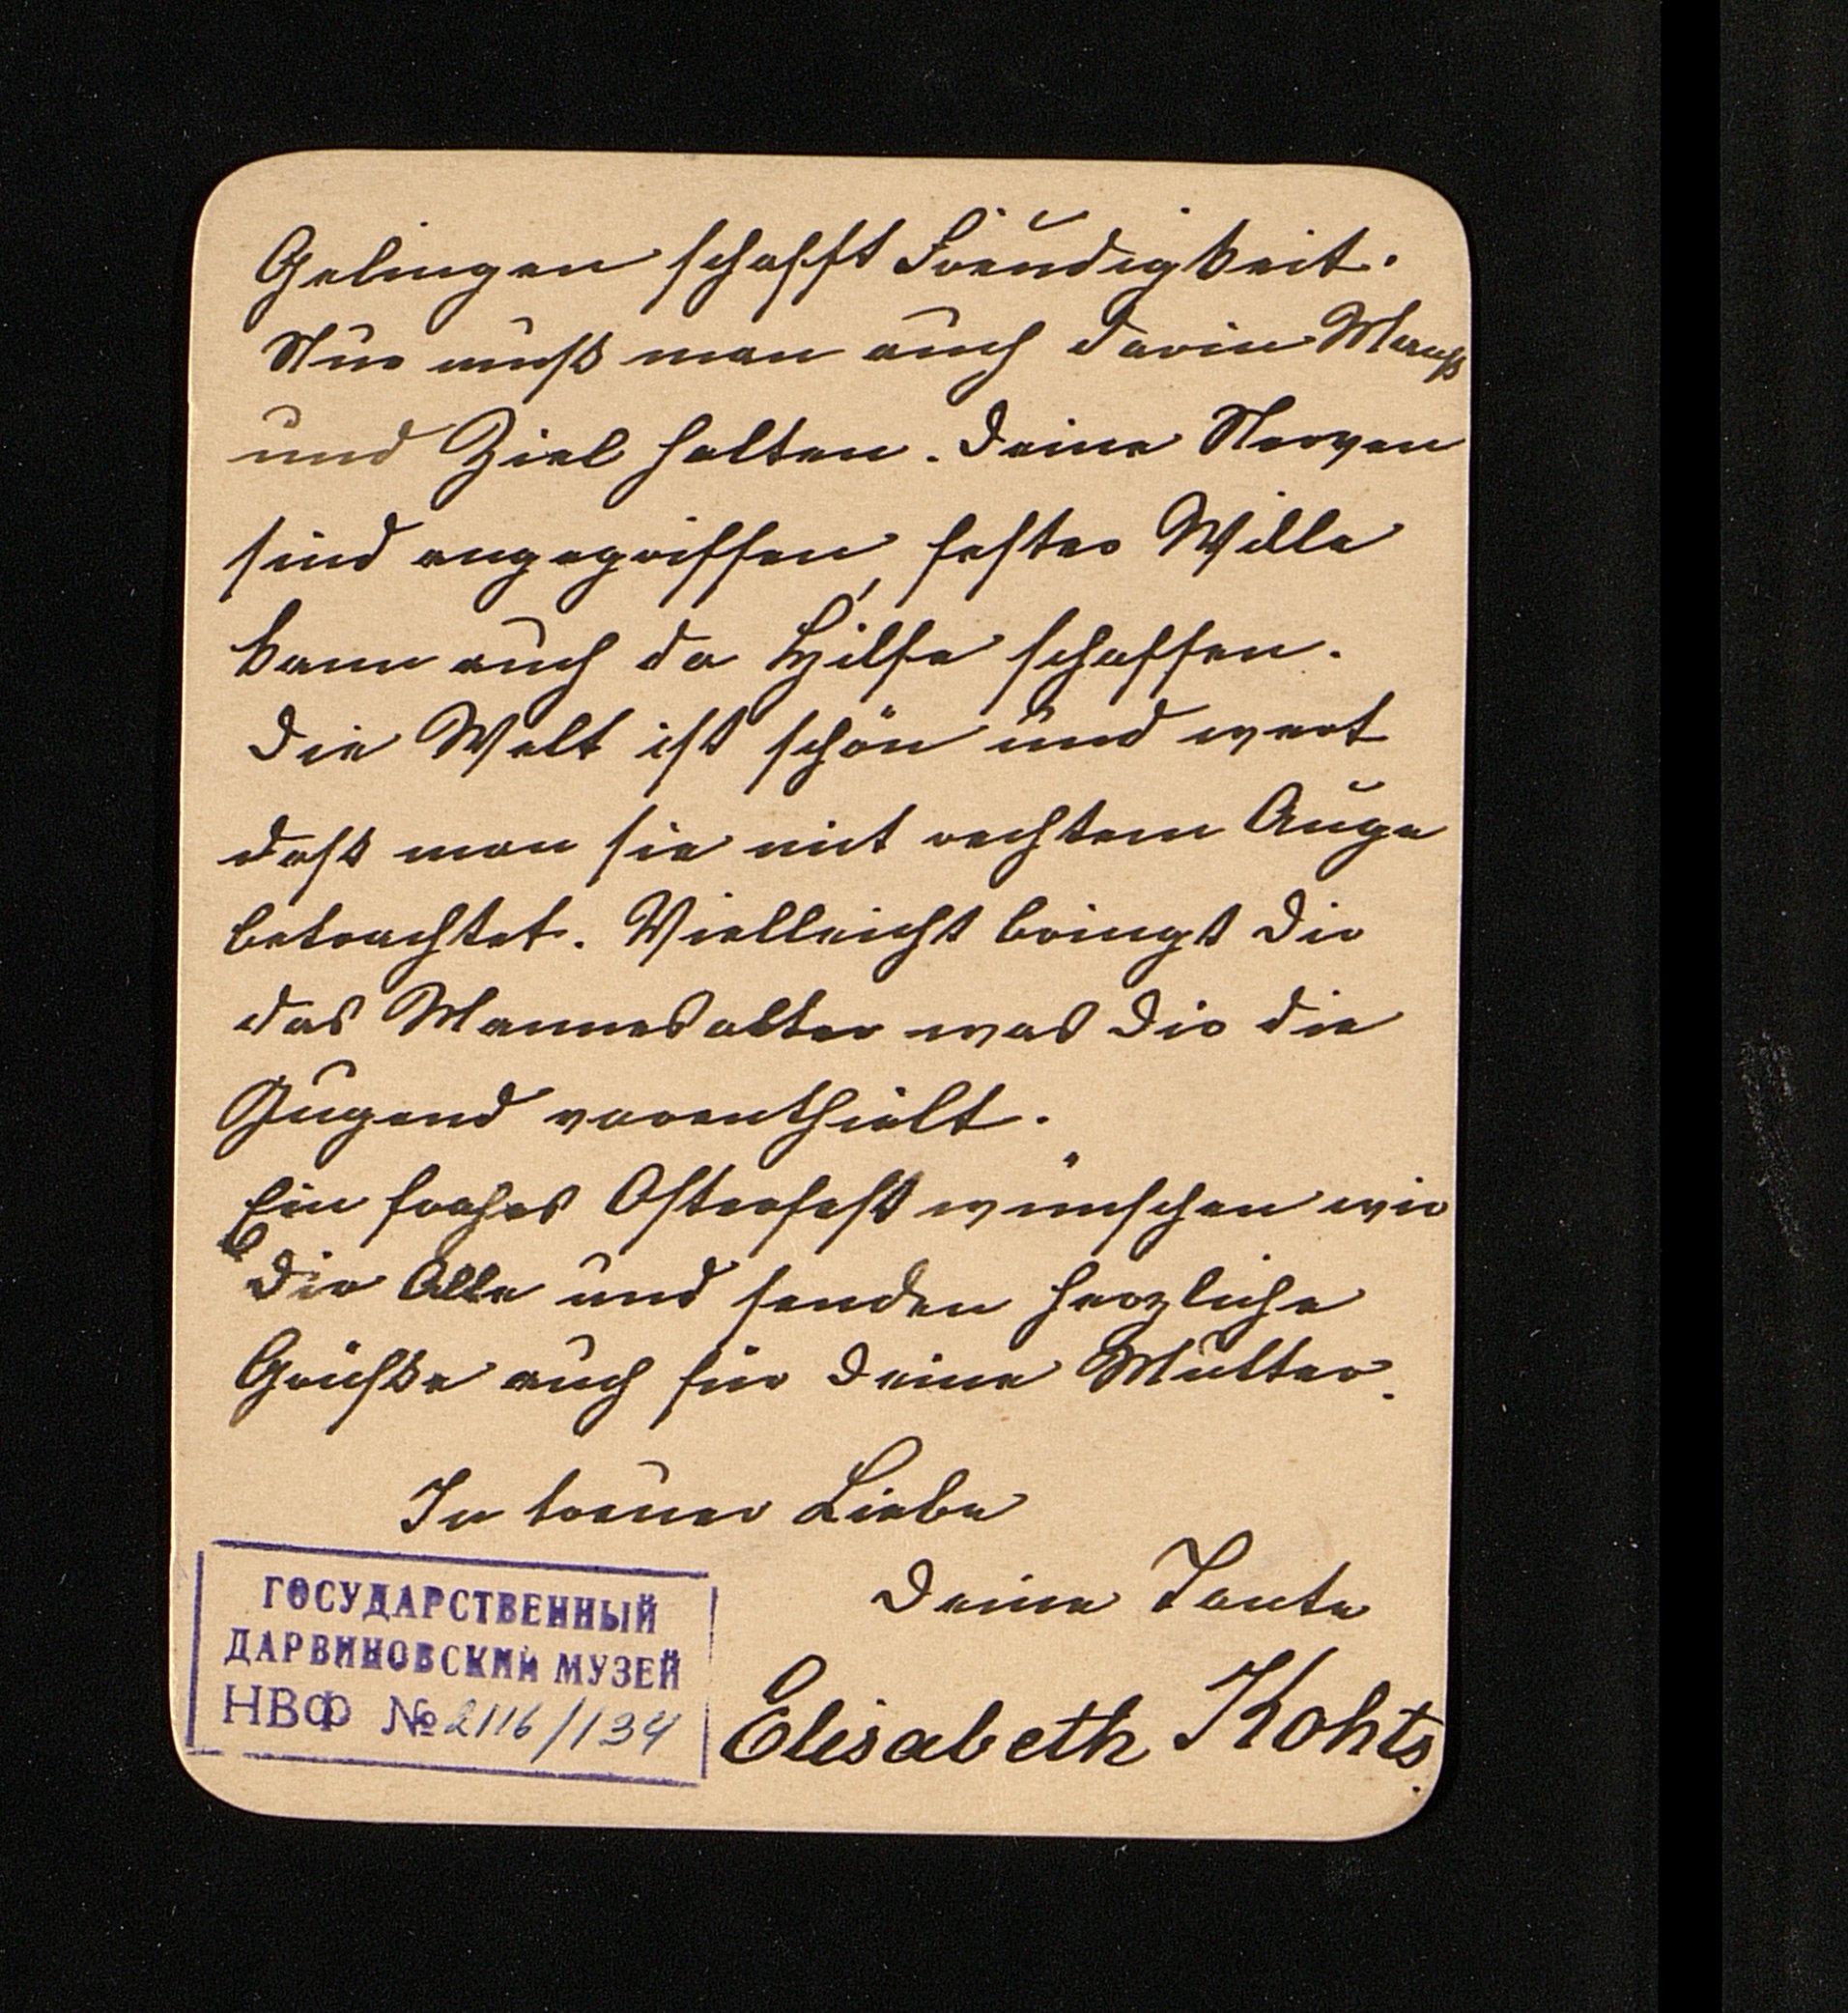 Gelingen schafft Freudigkeit.
Nur muß man auch darin Maaß
und Ziel halten. Deine Nerven
sind angegriffen, fester Wille
kann auch da Hilfe schaffen.
Die Welt ist schön und wert
daß man sie mit rechtem Auge
betrachtet. Vielleicht bringt Dir
das Mannesalter was Dir die
Jugend vorenthielt.
Ein frohes Osterfest wünschen wir
Dir Alle und senden herzliche
Grüße auch für Deine Mutter.
In treuer Liebe
Deine Tante
Elisabeth Kohts.
ГОСУДАРСТВЕННЫЙ
ДАРВИНОВСКИЙ МУЗЕЙ
НВФ № 2116/134